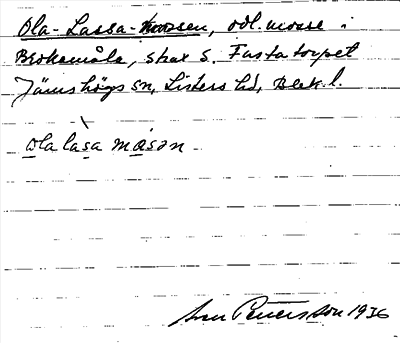 Ola-Lassa-mossen, odl. mosse i
Brokamåla, strax S. Fastatorpet
Jämshögs sn, Listers hd, Blek. l.
ola lasa måsen
Petersson 1936